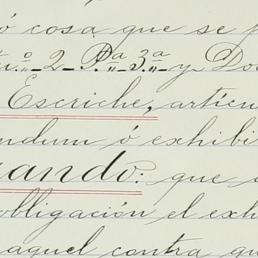 ó cosa que se p
ti.º 2 P.ª 3.ª y Do
Escriche, artícu
ndum ó exhibi
ando: que
obligación el exh
aquel contra qu